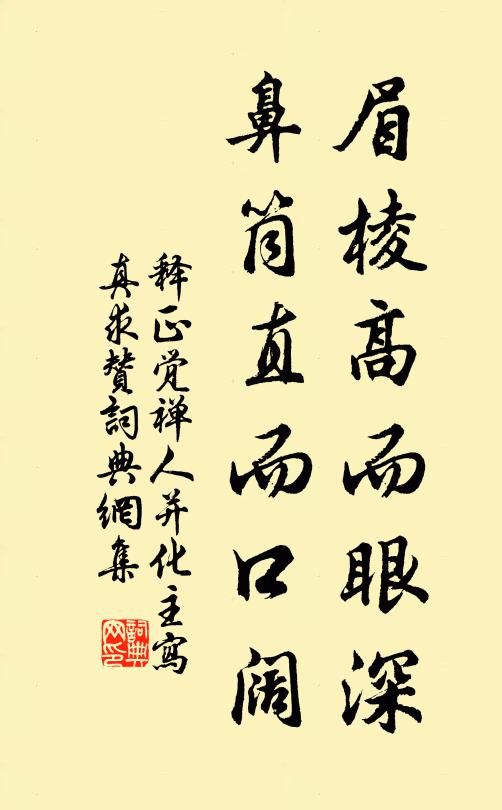 眉棱高而眼深
鼻筒直而口阔
释正觉禅人并化主寫
真求赞詞典網集
詞典网印